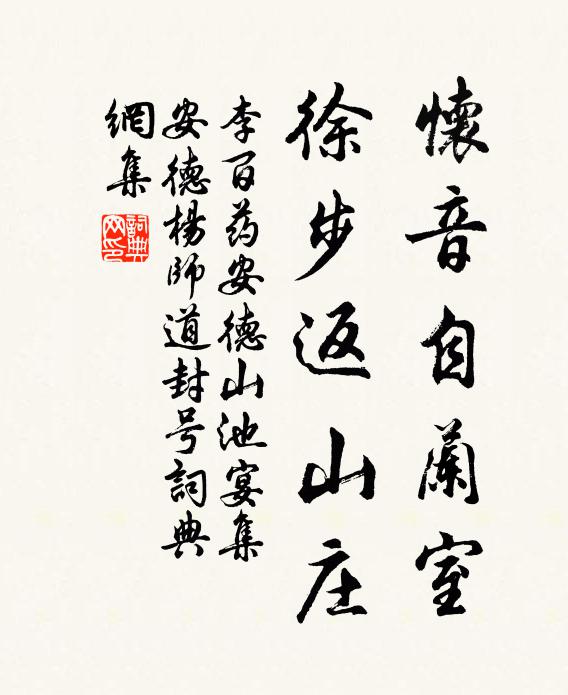 懷音自蘭室
徐步返山庄
李百药安德山池宴集
安德楊師道封号詞典
網集
詞典網印